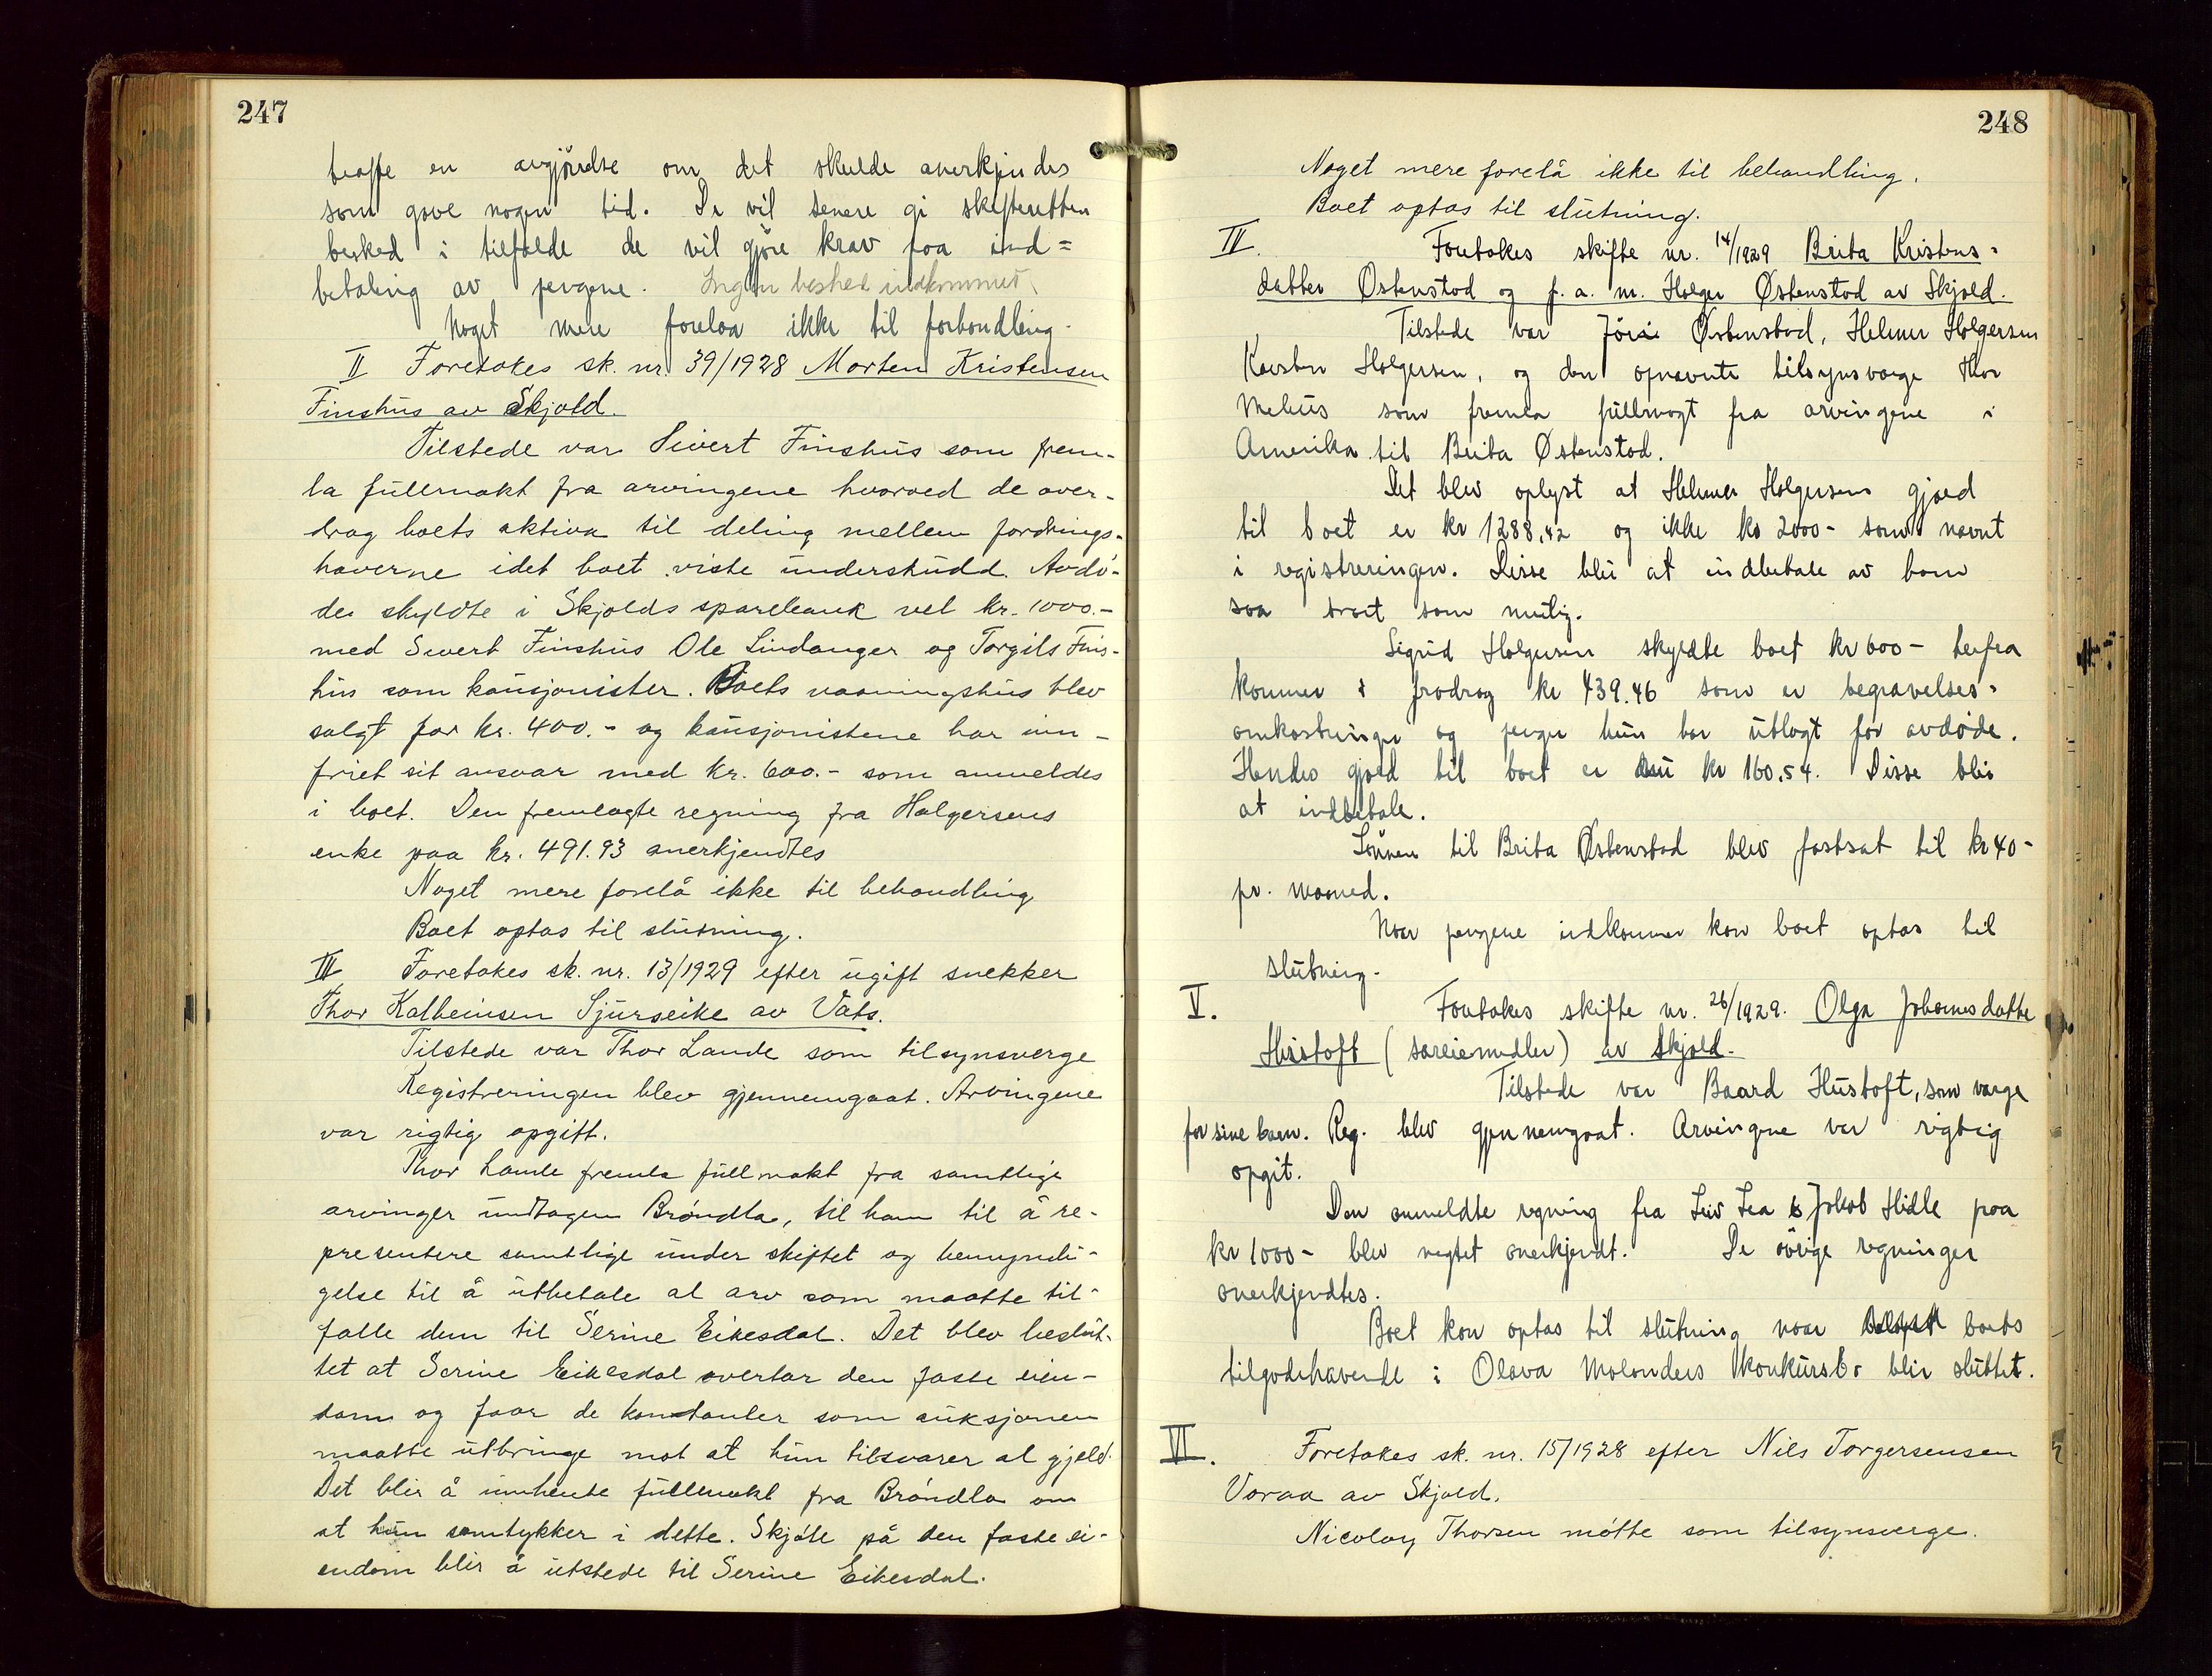 247
træffe en avgjørelse om det skulde anerkjendes
som gave nogen tid. De vil senere gi skifteretten
besked i tilfælde de vil gjøre krav paa ind=
betaling av pengene. Ingen beskee indkommet.
Noget mere forelaa ikke til forhandling.
II Foretokes sk. nr. 39/1928 Morten Kristensen
Finshus av Skjold.
Tilstede var Sivert Finshus som frem-
la fullmakt fra arvingene hvorved de over-
drog boets aktiva til deling mellem fordrings-
haverne idet boet viste underskudd. Avdö-
de skyldte i Skjolds sparebank vel kr. 1000.-
med Sivert Finshus Ole Lindanger og Torgils Fins-
hus som kausjonister. Boets vaaningshus blev
solgt for kr. 400.- og kausjonistene har inn-
friet sit ansvar med kr. 600.- som anmeldes
i boet. Den fremlagte regning fra Holgersens
enke paa kr. 491.93 anerkjendtes
Noget mere forelå ikke til behandling
Boet optas til slutning.
III Foretokes sk. nr. 13/1929 efter ugift snekker
Thor Kalheinsen Sjurseike av Vats.
Tilstede var Thor Lande som tilsynsverge
Registreringen blev gjennemgaat. Arvingene
var rigtig opgitt.
Thor Lande fremla fullmakt fra samtlige
arvinger undtagen Bröndla, til ham til å re-
presentere samtlige under skiftet og bemyndi-
gelse til å utbetale al arv som maatte til-
falle dem til Serine Eikesdal. Det blev beslut-
tet at Serine Eikesdal overtar den faste eien-
dom og faar de kontanter som auksjonen
maatte utbringe mot at hun tilsvarer al gjeld.
Det blir å innhente fullmakt fra Bröndla om
at hun samtykker i dette. Skjöte på den faste ei-
endom blir å utstede til Serine Eikesdal.
248
Noget mere forelå ikke til behandling.
Boet optas til slutning.
IV. Foretokes skifte nr. 14/1929 Brita Kristens-
datter Østenstad og f. a. m. Holger Østenstad av Skjold.
Tilstede var Østenstad, Helmer Holgersen
Karsten Holgersen, og den opnævnte tilsynsværge Thor
Mehus som fremla fullmagt fra arvingene i
Amerika til Brita Østenstad.
Det blev oplyst at Helmer Holgersens gjæld
til boet er kr 1288,42 og ikke kr 2000- som nævnt
i registreringen. Disse blir at indbetale av ham
saa snart som mulig.
Sigrid Holgersen skyldte boet kr 600- herfra
kommer i fradrag kr 439.46 som er begravelses-
omkostninger og penger hun har utlagt for avdøde.
Hendes gjæld til boet er kr 160.54. Disse blir
at indbetale.
Lønnen til Brita Østenstad blev fastsat til kr 40-
pr. maaned.
Naar pengene indkommer kan boet optas til
slutning.
V. Foretokes skifte nr. 26/1929. Olga Johannesdatte
Hustoft (særeiemidler) av Skjold.
Tilstede var Baard Hustoft, som værge
for sine barn. Reg. blev gjennemgaat. Arvingene var rigtig
opgit.
Den anmeldte regning fra Leiv Lea & Jakob Hidle paa
kr 1000- blev negtet anerkjendt. De övrige regninger
anerkjendtes.
Boet kan optas til slutning naar boets
tilgodehavende i Olava Molanders konkursbo blir sluttet.
VI. Foretokes sk. nr. 15/1928 efter Nils Torgersensen
Voraa av Skjold.
Nicolay Thorsen mötte som tilsynsverge.